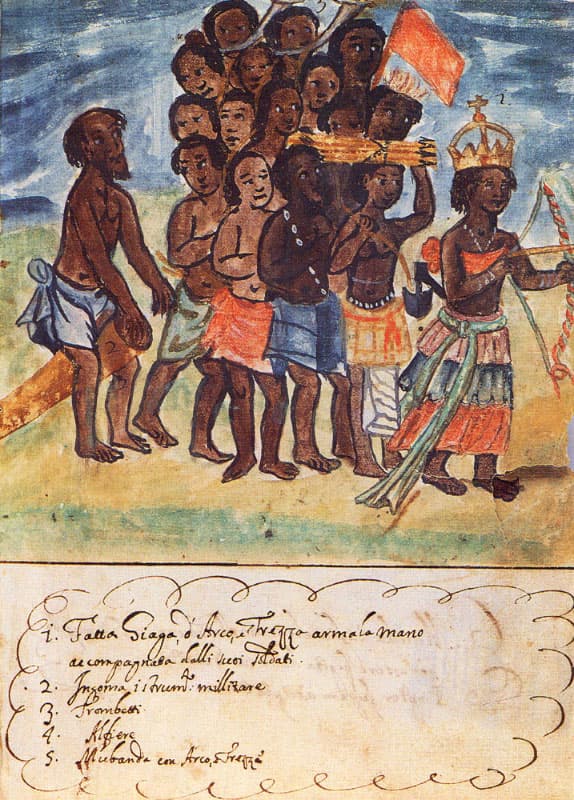 3
1.
1. Fatta Giaga, d'Arco, e Frezza armala mano
accompagnata dalli suoi soldati.
2. Ingoma istrum: millitare
3. Trombetti
4. Alfiere
5. Mubanda con Arco, e Frezza